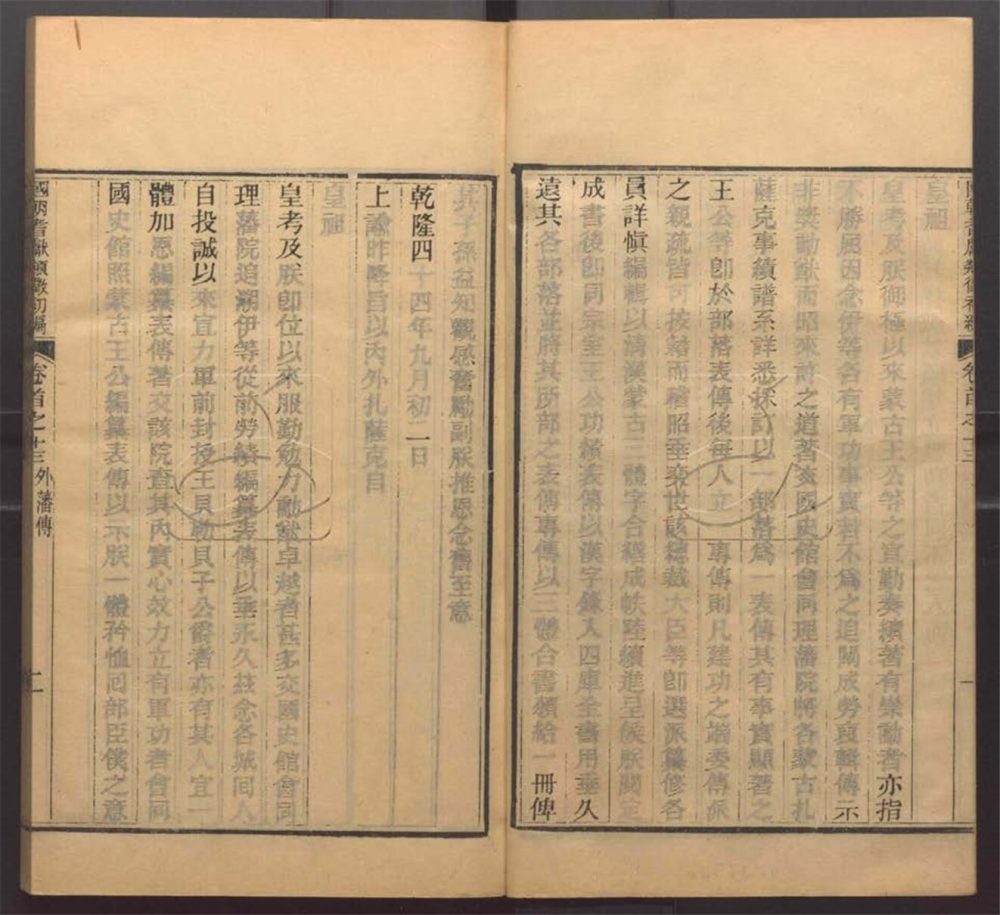 皇祖
皇考及朕御極以來蒙古王公等之宣勤奏績著有崇勳者亦指
不勝屈因念伊等各有軍功事實若不為之追闡成勞裒輯傳示
非獎勳猷而昭來許之道著交國史館會同理藩院將各蒙古札
薩克事績譜系詳悉採訂以一部落為一表傳其有事實顯著之
王公等卽於部落表傳後每人立一專傳則凡建功之端委傳派
之親疏皆可按籍而稽昭垂奕世該總裁大臣等卽選派纂修各
員詳慎編輯以清漢蒙古三體字合繕成帙陸續進呈候朕閱定
成書後卽同宗室王公功績表傳以漢字錄入四庫全書用垂久
遠其各部落並將其所部之表傳專傳以三體合書頒給一冊俾
其子孫益知觀感奮勵副朕推恩念舊至意
乾隆四十四年九月初二日
上諭昨降旨以內外扎薩克自
皇祖
皇考及朕卽位以來服勤効力勳猷卓越者甚多交國史館會同
理藩院追溯伊等從前勞績編纂表傳以垂永久茲念各城回人
自投誠以來宣力軍前封授王貝勒貝子公爵者亦有其人宜一
體加恩編纂表傳著交該院查其內實心效力立有軍功者會同
國史館照蒙古王公編纂表傳以示朕一體矜恤回部臣僕之意
國朝耆獻類徵初編
卷首之十三外藩傳
二